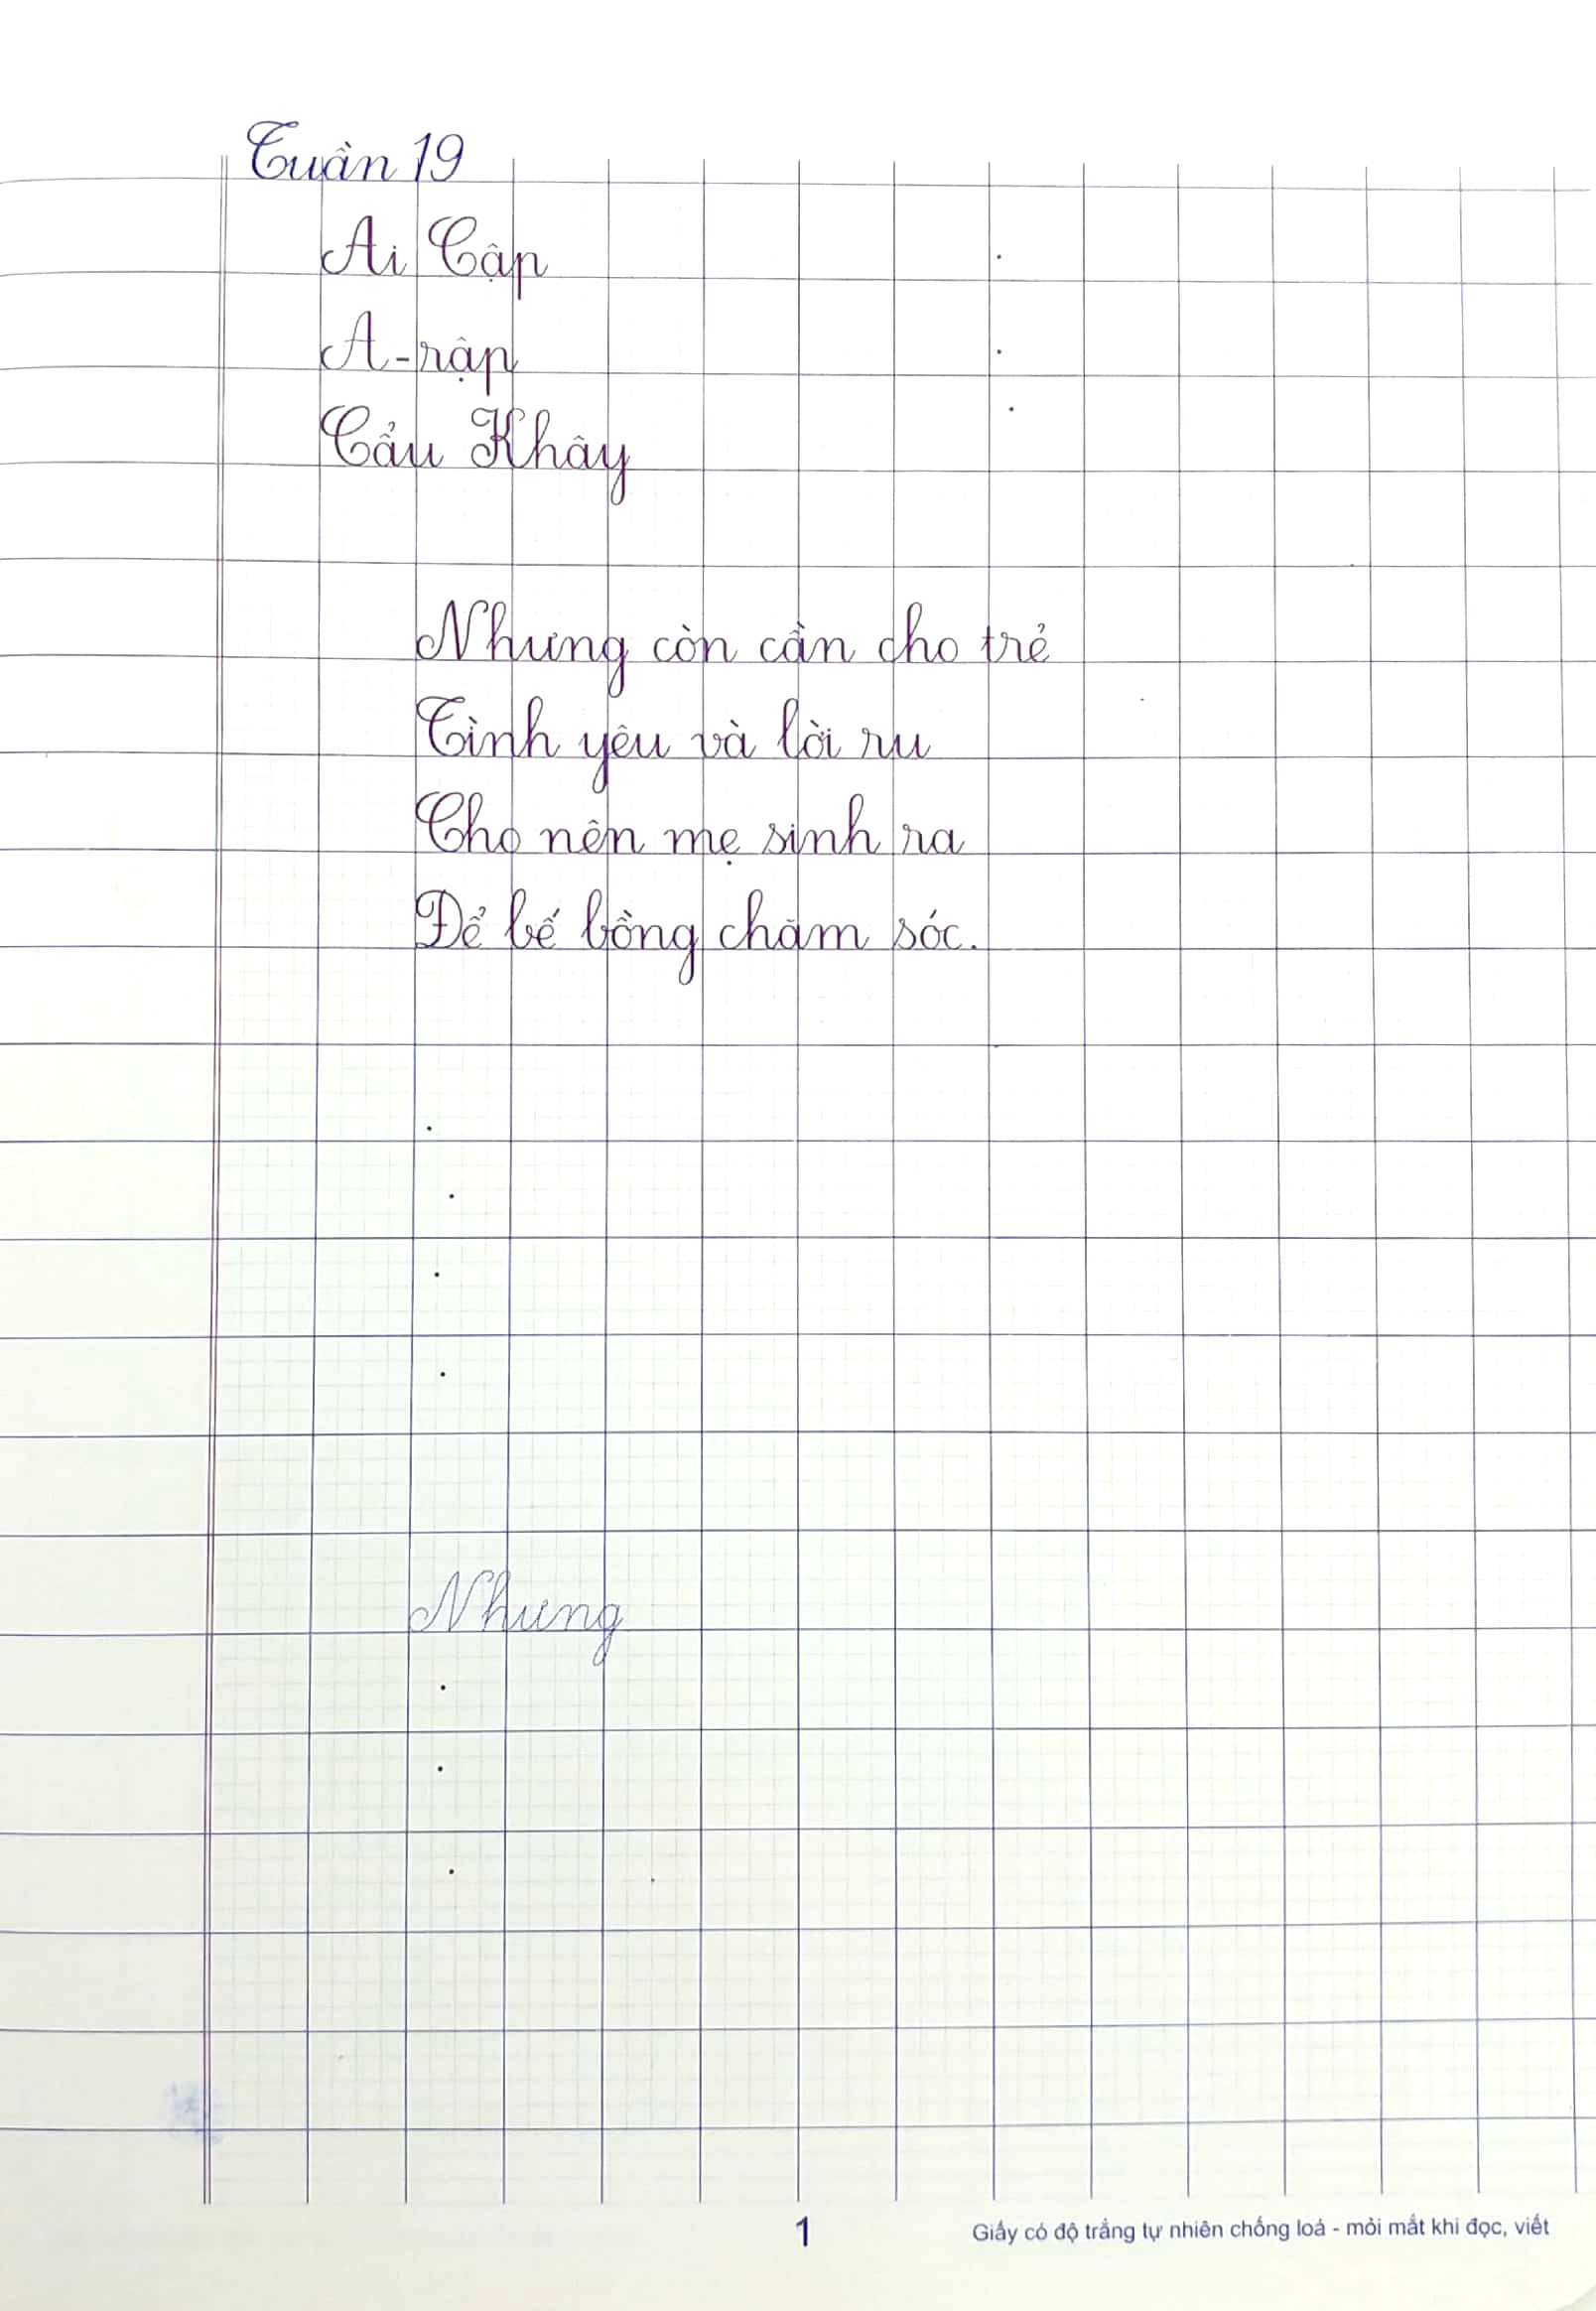 Tuần 19
Ai Cập
A-rập
Cẩu Khây
Nhưng còn cần cho trẻ
Tình yêu và lời ru
Cho nên mẹ sinh ra
Để bế bồng chăm sóc.
Nhưng
1
Giấy có độ trắng tự nhiên chống loá - mỏi mắt khi đọc, viết